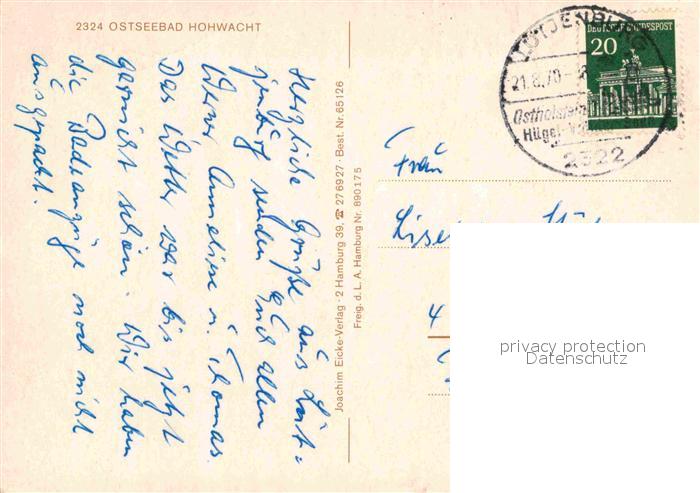 2324 OSTSEEBAD HOHWACHT
Herzliche Grüße aus Lüt=
jenburg senden Euch allen
Werner Annelise u. Thomas.
Das Wetter war bis jetzt
garnicht schön. Wir haben
die Badeanzüge noch nicht
ausgepackt.
Joachim Eicke-Verlag · 2 Hamburg 39, ☎ 276927 · Best. Nr. 65126
Freig. d. L. A. Hamburg Nr. 890175
LÜTJENBURG
21.8.70
Ostholstein
Hügel
2322
DEUTSCHE BUNDESPOST
20
Frau
4
privacy protection
Datenschutz